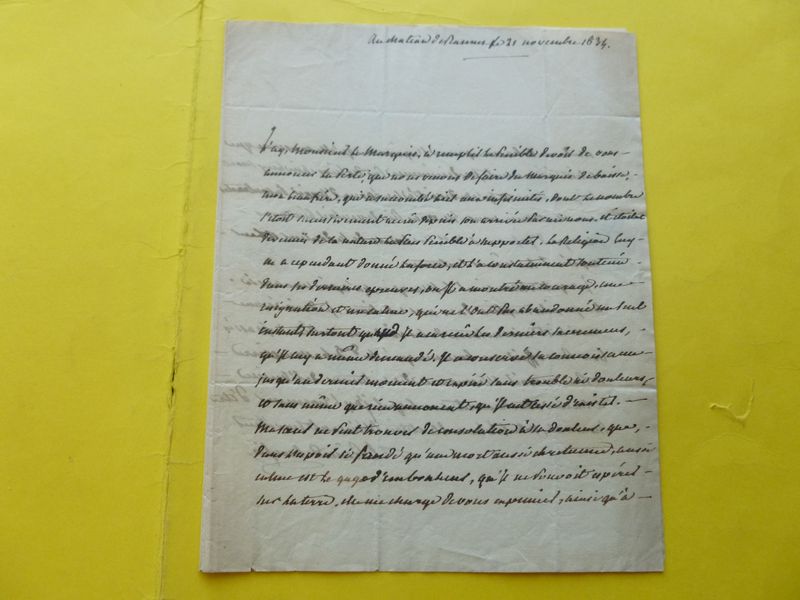 Au château de Rannes le 21 novembre 1834.
J'ay, Monsieur le Marquis, à remplir le pénible devoir de vous
annoncer la perte, que nous venons de faire du Marquis de
mon beaufrère, qui a succombé aux infirmités, dont le nombre
s'etoit successivement accru depuis son arrivée chez nous, et étoient
devenues de la nature la plus pénible à supporter. La Religion luy
en a cependant donné la force, et l'a constamment soutenu
dans ses dernieres epreuves, où Il a montré un courage, une
resignation et un calme, qui ne l'ont pas abandonné un seul
instant, surtout quand Il a reçu les derniers sacremens,
qu'Il avoit même demandé. Il a conservé sa connoissance
jusqu'au dernier moment et expiré sans trouble ni douleurs,
et sans même que rien annoncent, qu'Il eut cessé d'exister.
Ma sœur ne peut trouver de consolation à sa douleur, que
dans l'espoir si fondé qu'une mort aussi chretienne, aussi
calme est le gage d'un bonheur, qu'Il ne pouvoit espérer
sur la terre. Elle me charge de vous exprimer, ainsi qu'à